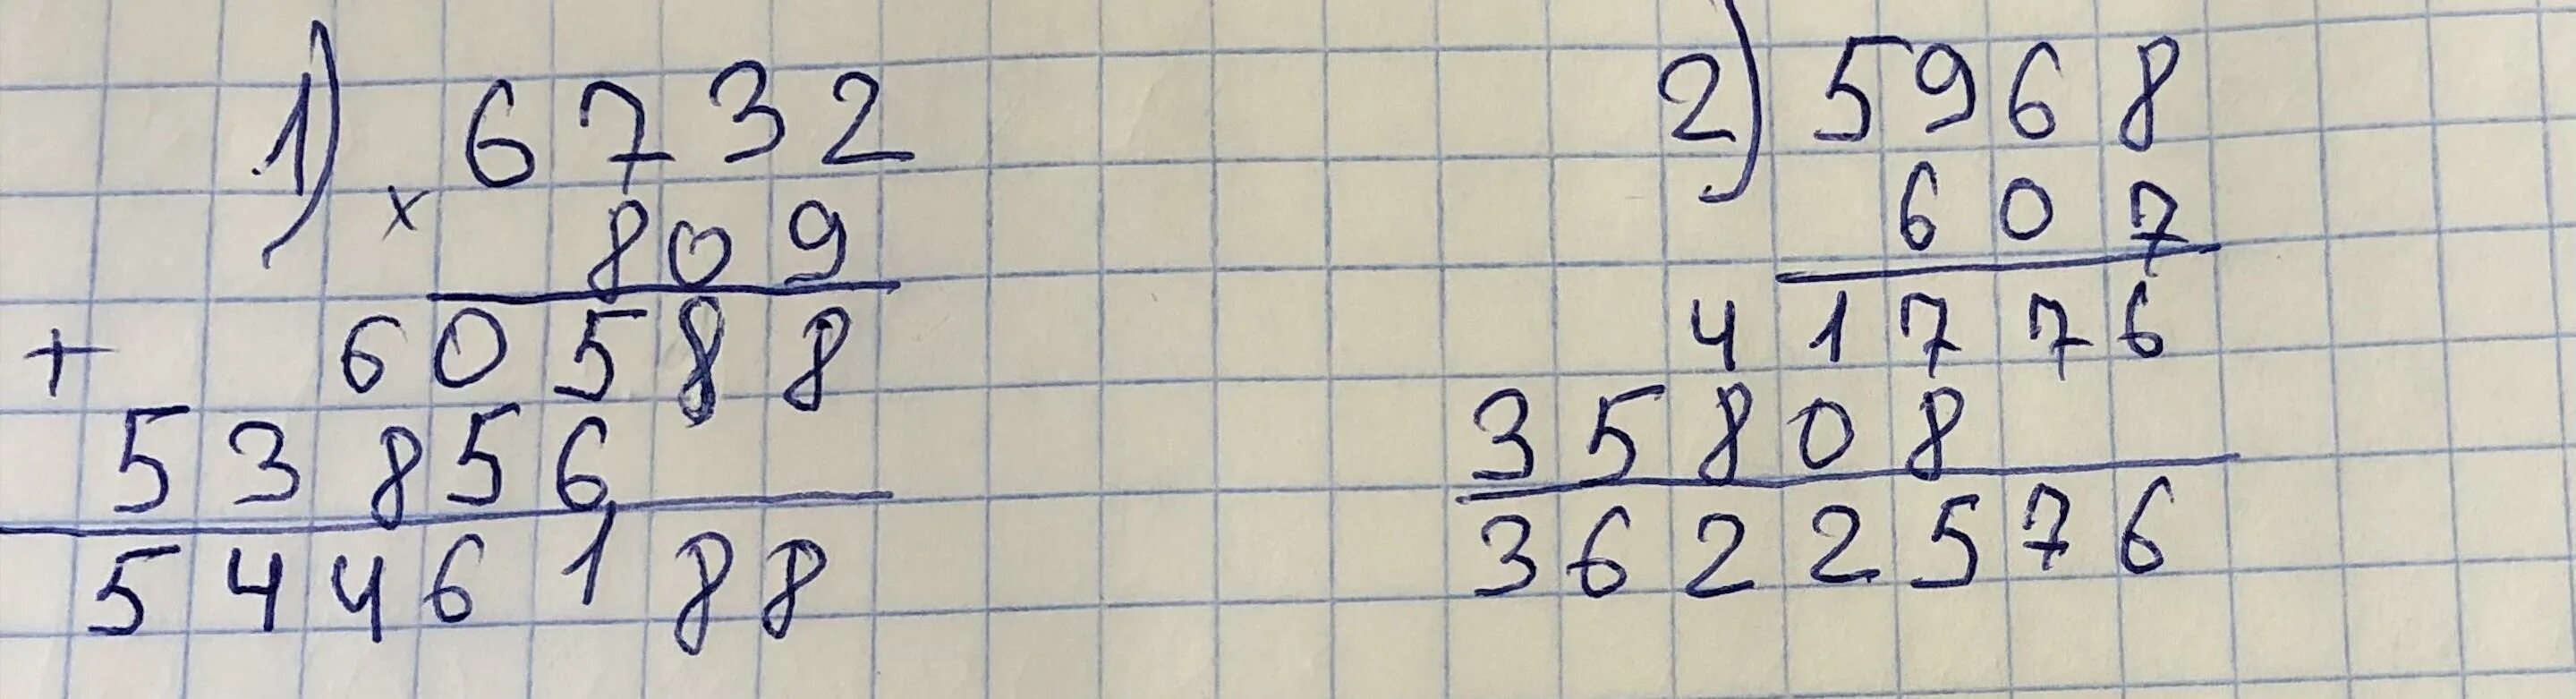 1) 6732
× 809
+ 60588
53856
5446188
2) 5968
607
41776
35808
3622576